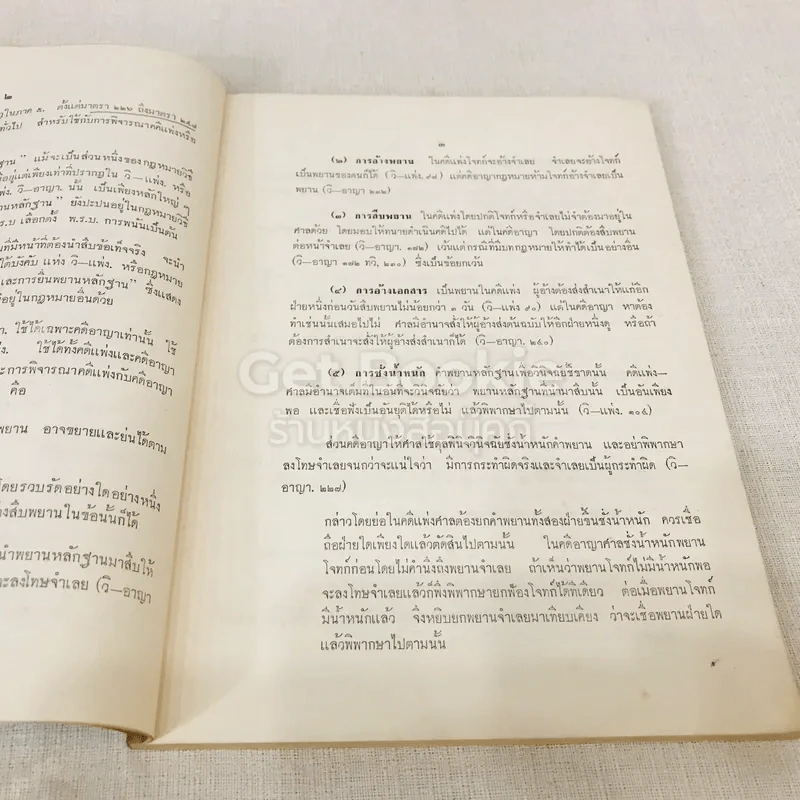 ๒
ในภาค ๕. ตั้งแต่มาตรา ๒๒๖ ถึงมาตรา ๒๔๘
ทั่วไป สำหรับใช้กับการพิจารณาคดีแพ่งหรือ
ฐาน" แม้จะเป็นส่วนหนึ่งของกฎหมายวิธี
อยู่แต่เพียงเท่าที่ปรากฏใน วิ—แพ่ง. หรือ
วิ—อาญา. นั้น เป็นเพียงหลักใหญ่ ๆ
หลักฐาน" ยังปะปนอยู่ในกฎหมายวิธี
พ.ร.บ เลือกตั้ง พ.ร.บ. การพนันเป็นต้น
ที่มีหน้าที่ต้องนำสืบข้อเท็จจริง จะนำ
ได้บังคับ แห่ง วิ—แพ่ง. หรือกฎหมาย
และการยื่นพยานหลักฐาน" ซึ่งแสดง
อยู่ในกฎหมายอื่นด้วย
ใช้ได้เฉพาะคดีอาญาเท่านั้น ใช้
ใช้ได้ทั้งคดีแพ่งและคดีอาญา
ะการพิจารณาคดีแพ่งกับคดีอาญา
คือ
พยาน อาจขยายและย่นได้ตาม
โดยรวบรัดอย่างใดอย่างหนึ่ง
สืบพยานในข้อนั้นก็ได้
นำพยานหลักฐานมาสืบให้
จะลงโทษจำเลย (วิ—อาญา
๓
(๒) การอ้างพยาน ในคดีแพ่งโจทก์จะอ้างจำเลย จำเลยจะอ้างโจทก์
เป็นพยานของตนก็ได้ (วิ—แพ่ง. ๙๗) แต่คดีอาญากฎหมายห้ามโจทก์อ้างจำเลยเป็น
พยาน (วิ—อาญา ๒๓๒)
(๓) การสืบพยาน ในคดีแพ่งโดยปกติโจทก์หรือจำเลยไม่จำต้องมาอยู่ใน
ศาลด้วย โดยมอบให้ทนายดำเนินคดีไปได้ แต่ในคดีอาญา โดยปกติต้องสืบพยาน
ต่อหน้าจำเลย (วิ—อาญา. ๑๗๒) เว้นแต่กรณีที่มีบทกฎหมายให้ทำได้เป็นอย่างอื่น
(วิ—อาญา ๑๗๒ ทวิ, ๒๓๐) ซึ่งเป็นข้อยกเว้น
(๔) การอ้างเอกสาร เป็นพยานในคดีแพ่ง ผู้อ้างต้องส่งสำเนาให้แก่อีก
ฝ่ายหนึ่งก่อนวันสืบพยานไม่น้อยกว่า ๓ วัน (วิ—แพ่ง ๙๐) แต่ในคดีอาญา หาต้อง
ทำเช่นนั้นเสมอไปไม่ ศาลมีอำนาจสั่งให้ผู้อ้างส่งต้นฉบับให้อีกฝ่ายหนึ่งดู หรือถ้า
ต้องการสำเนาจะสั่งให้ผู้อ้างส่งสำเนาก็ได้ (วิ—อาญา. ๒๔๐)
(๕) การชั่งน้ำหนัก คำพยานหลักฐานเพื่อวินิจฉัยชี้ขาดนั้น คดีแพ่ง—
ศาลมีอำนาจเต็มที่ในอันที่จะวินิจฉัยว่า พยานหลักฐานที่นำมาสืบนั้น เป็นอันเพียง
พอ และเชื่อฟังเป็นอันยุติได้หรือไม่ แล้วพิพากษาไปตามนั้น (วิ—แพ่ง. ๑๐๔)
ส่วนคดีอาญาให้ศาลใช้ดุลพินิจวินิจฉัยชั่งน้ำหนักคำพยาน และอย่าพิพากษา
ลงโทษจำเลยจนกว่าจะแน่ใจว่า มีการกระทำผิดจริงและจำเลยเป็นผู้กระทำผิด (วิ—
อาญา. ๒๒๗)
กล่าวโดยย่อในคดีแพ่งศาลต้องยกคำพยานทั้งสองฝ่ายขึ้นชั่งน้ำหนัก ควรเชื่อ
ถือฝ่ายใดเพียงใดแล้วตัดสินไปตามนั้น ในคดีอาญาศาลชั่งน้ำหนักพยาน
โจทก์ก่อนโดยไม่คำนึงถึงพยานจำเลย ถ้าเห็นว่าพยานโจทก์ไม่มีน้ำหนักพอ
จะลงโทษจำเลยแล้วก็พึงพิพากษายกฟ้องโจทก์ได้ทีเดียว ต่อเมื่อพยานโจทก์
มีน้ำหนักแล้ว จึงหยิบยกพยานจำเลยมาเทียบเคียง ว่าจะเชื่อพยานฝ่ายใด
แล้วพิพากษาไปตามนั้น
Get Bookie
ร้านหนังสือนุกดี